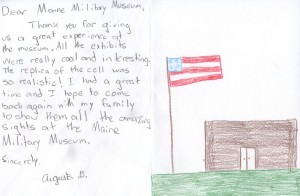 Dear Maine Military Museum,
Thank you for giving
us a great experience at
the museum. All the exhibits
were really cool and interesting.
The replica of the cell was
so realistic! I had a great
time and I hope to come
back again with my family
to show them all the amazing
sights at the Maine
Military Museum.
Sincerely,
August D.